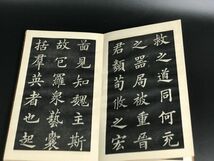 救之道同何元
之器局被重晉
君顏荀攸之宏
見知魏主斯
故包羅眾藝囊
括羣英者也起